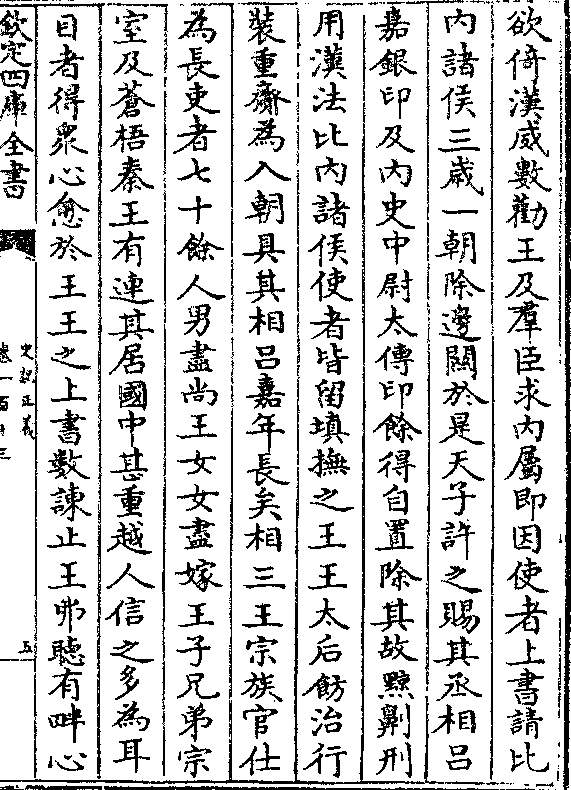 欲倚漢威數勸王及羣臣求內屬即因使者上書請比
內諸侯三歲一朝除邊關於是天子許之賜其丞相呂
嘉銀印及內史中尉太傅印餘得自置除其故黥劓刑
用漢法比內諸侯使者皆留填撫之王王太后飭治行
裝重齎為入朝具其相呂嘉年長矣相三王宗族官仕
為長吏者七十餘人男盡尚王女女盡嫁王子兄弟宗
室及蒼梧秦王有連其居國中甚重越人信之多為耳
目者得衆心愈於王王之上書數諫止王王弗聽有畔心
欽定四庫全書
史記正義
卷一百十三
五